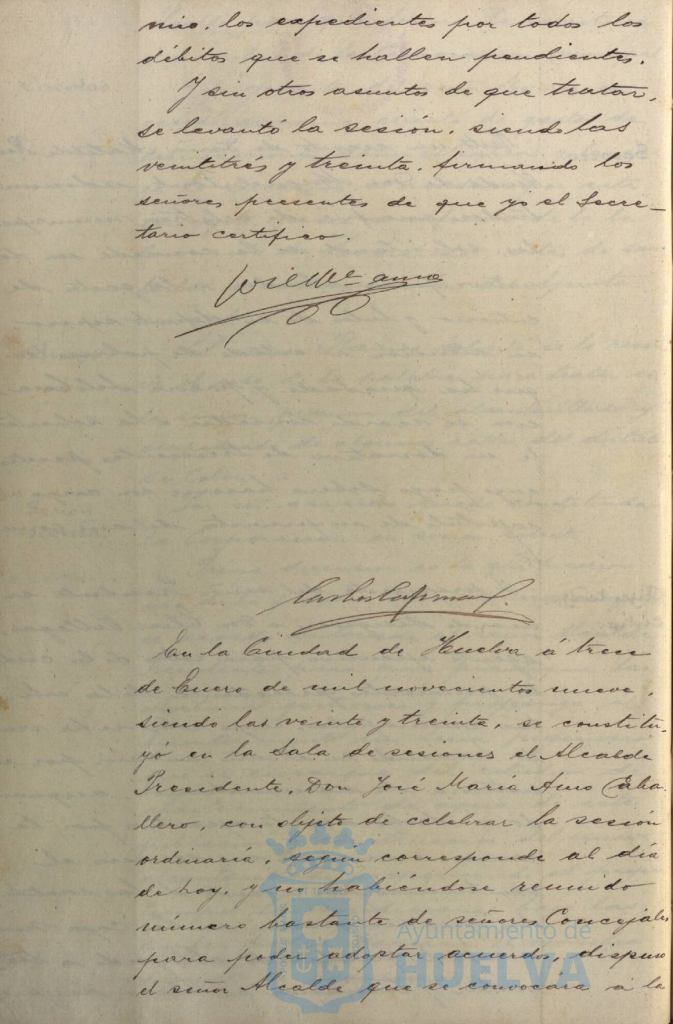 mio, los expedientes por todos los
débitos que se hallen pendientes.
Y sin otros asuntos de que tratar,
se levantó la sesión, siendo las
veintitrés y treinta, firmando los
señores presentes de que yo el Secre-
tario certifico.
José Mª Amo
Carlos
En la Ciudad de Huelva á trece
de Enero de mil novecientos nueve,
siendo las veinte y treinta, se constitu-
yó en la Sala de sesiones el Alcalde
Presidente, Don José María Amo Caba-
llero, con objeto de celebrar la sesión
ordinaria, según corresponde al día
de hoy, y no habiéndose reunido
número bastante de señores Concejales
para poder adoptar acuerdos, dispuso
el señor Alcalde que se convocara á la
Ayuntamiento de
HUELVA